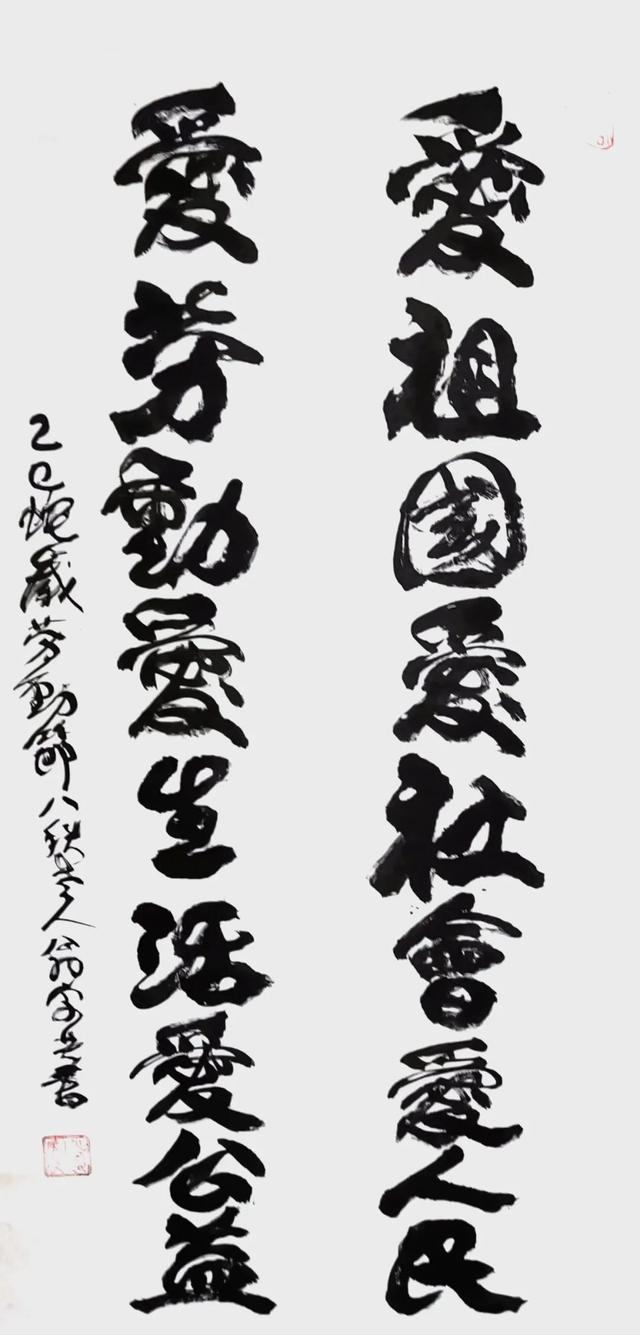 愛祖國愛社會愛人民
愛劳動愛生活愛公益
乙巳蛇歲劳動節八秩老人翁家昌書